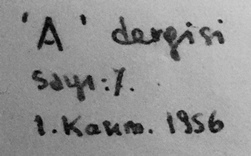 'A' dergisi
Sayı: 1.
1. Kasım. 1956